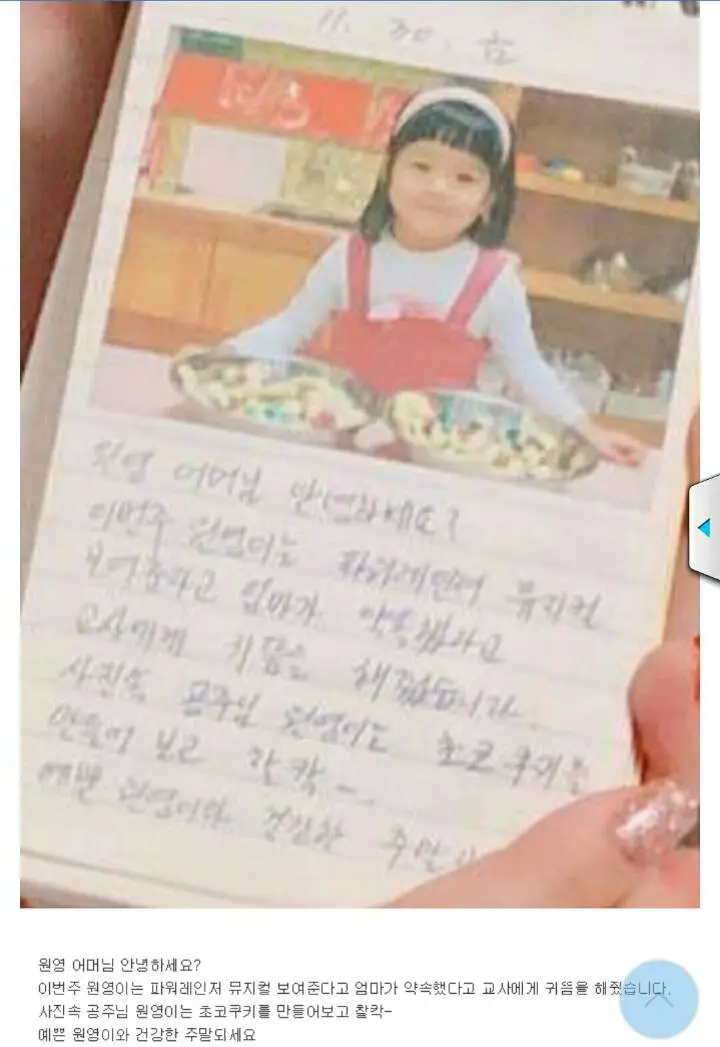 11. 30. 금
원영 어머님 안녕하세요?
이번주 원영이는 파워레인저 뮤지컬
보여준다고 엄마가 약속했다고
교사에게 귀뜸을 해줬습니다.
사진속 공주님 원영이는 초코쿠키를
만들어 보고 찰칵-.
예쁜 원영이와 건강한 주말
원영 어머님 안녕하세요?
이번주 원영이는 파워레인저 뮤지컬 보여준다고 엄마가 약속했다고 교사에게 귀뜸을 해줬습니다.
사진속 공주님 원영이는 초코쿠키를 만들어보고 찰칵-
예쁜 원영이와 건강한 주말되세요